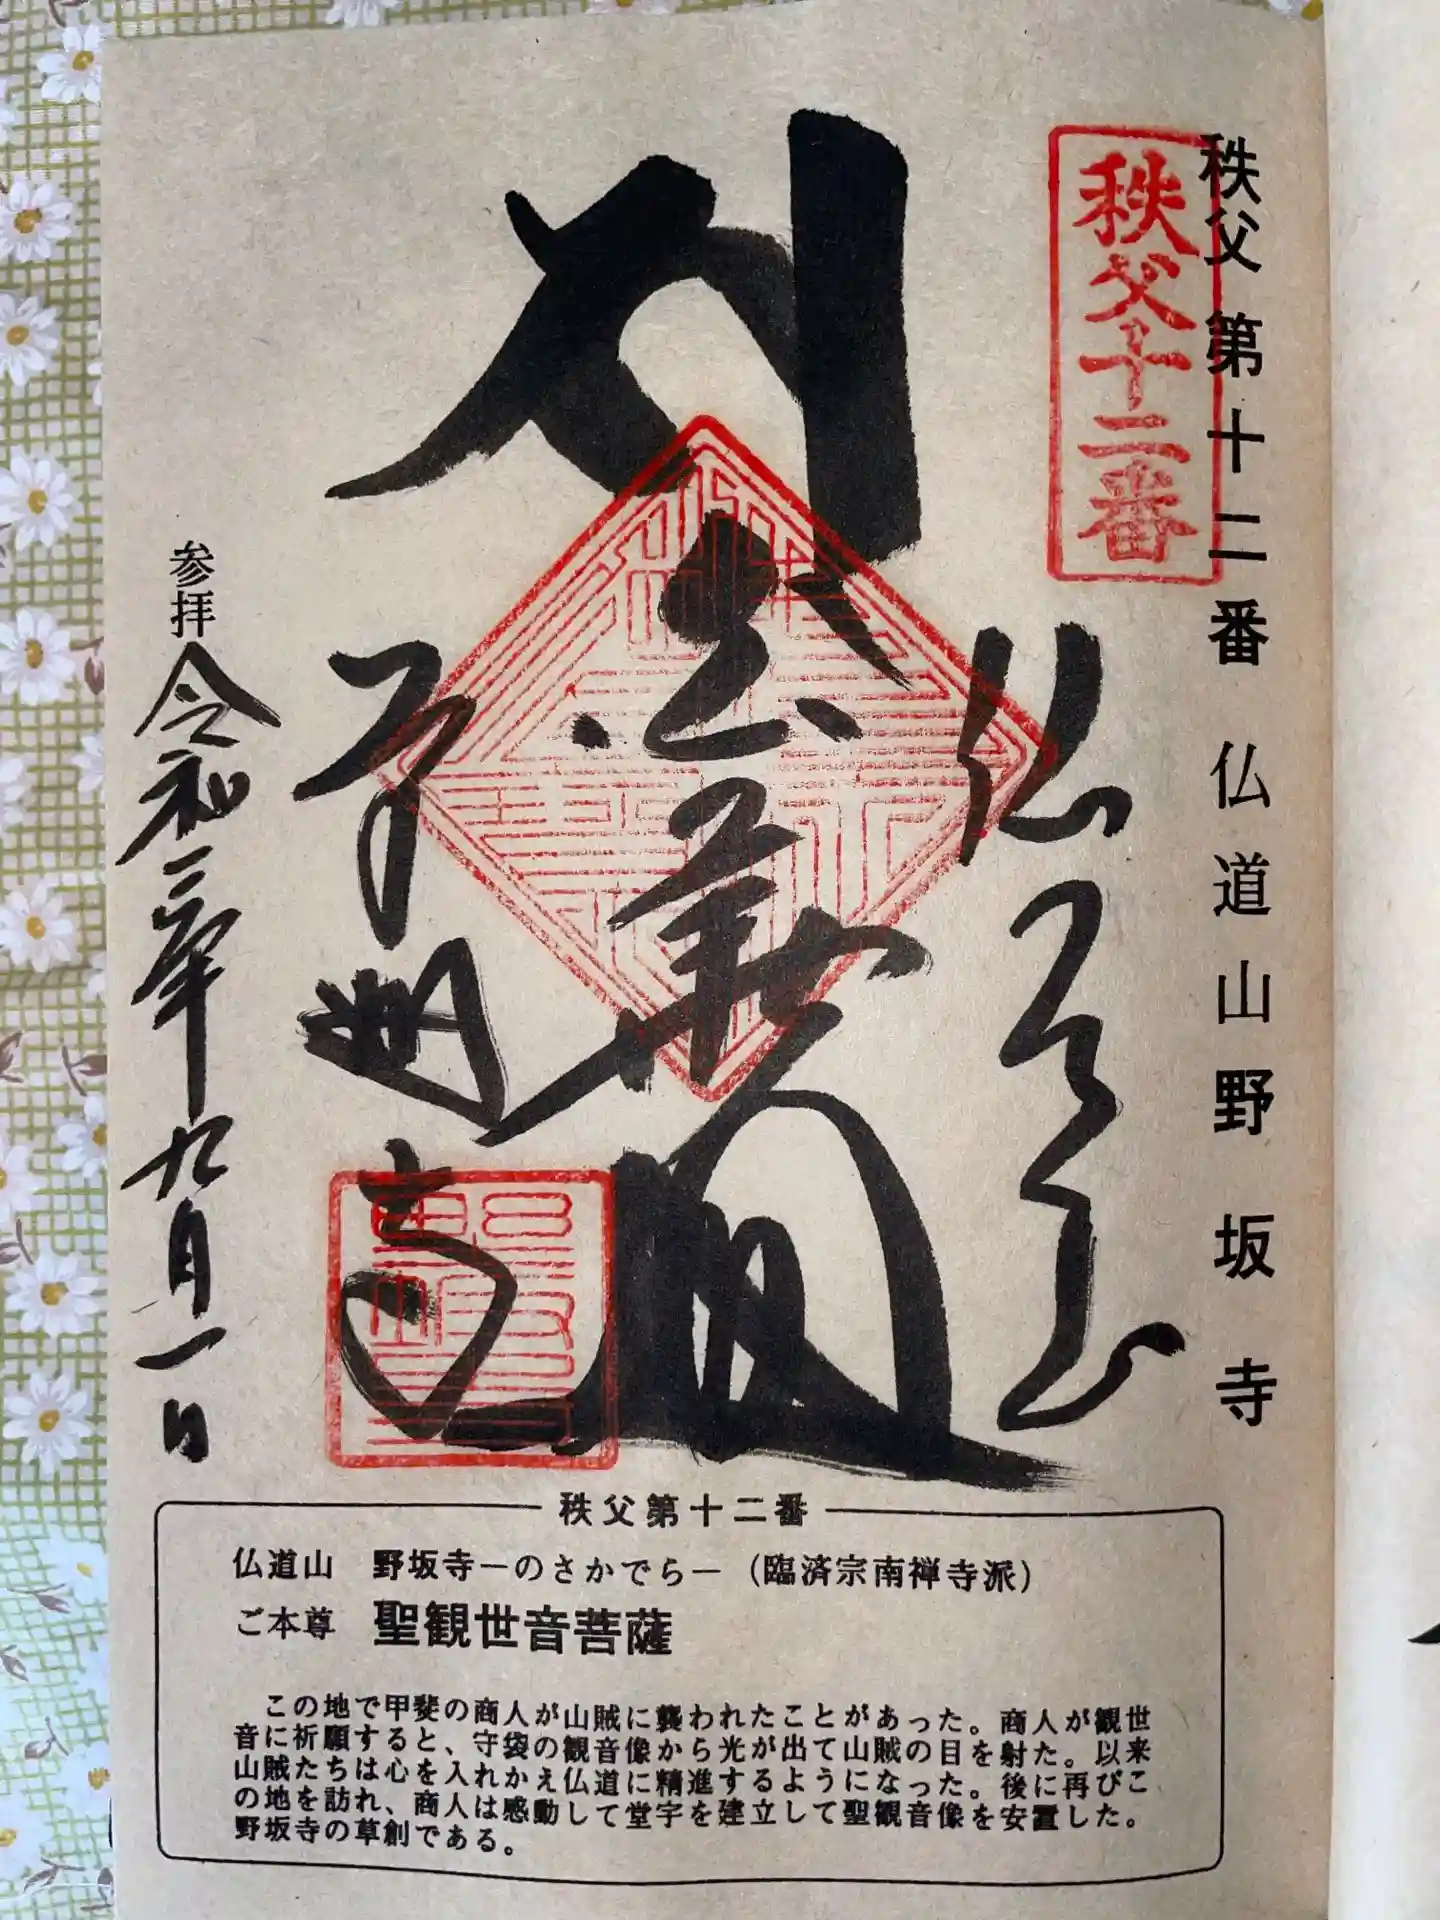 秩父第十二番 仏道山野坂寺
秩父十二番
仏道山
野坂寺
参拝 令和三年九月一日
秩父第十二番
仏道山 野坂寺―のさかでら―(臨済宗南禅寺派)
ご本尊 聖観世音菩薩
この地で甲斐の商人が山賊に襲われたことがあった。商人が観世
音に祈願すると、守袋の観音像から光が出て山賊の目を射た。以来
山賊たちは心を入れかえ仏道に精進するようになった。後に再びこ
の地を訪れ、商人は感動して堂宇を建立して聖観音像を安置した。
野坂寺の草創である。